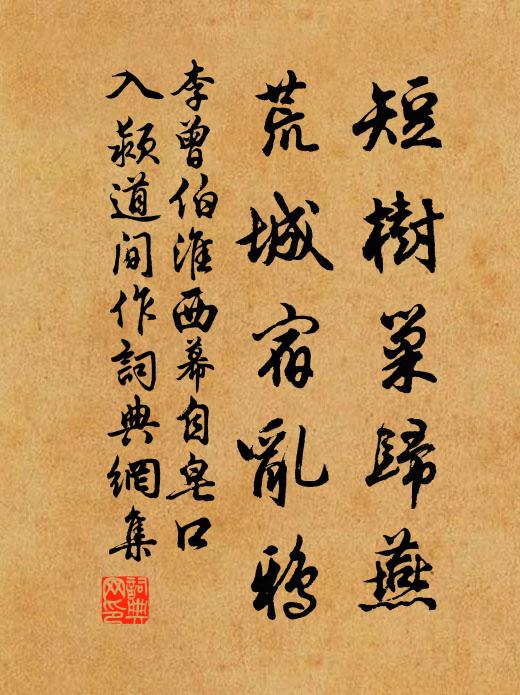 短樹巢歸燕
荒城宿亂鴉
李曾伯淮西幕自皂口
入潁道間作詞典網集
詞典網印